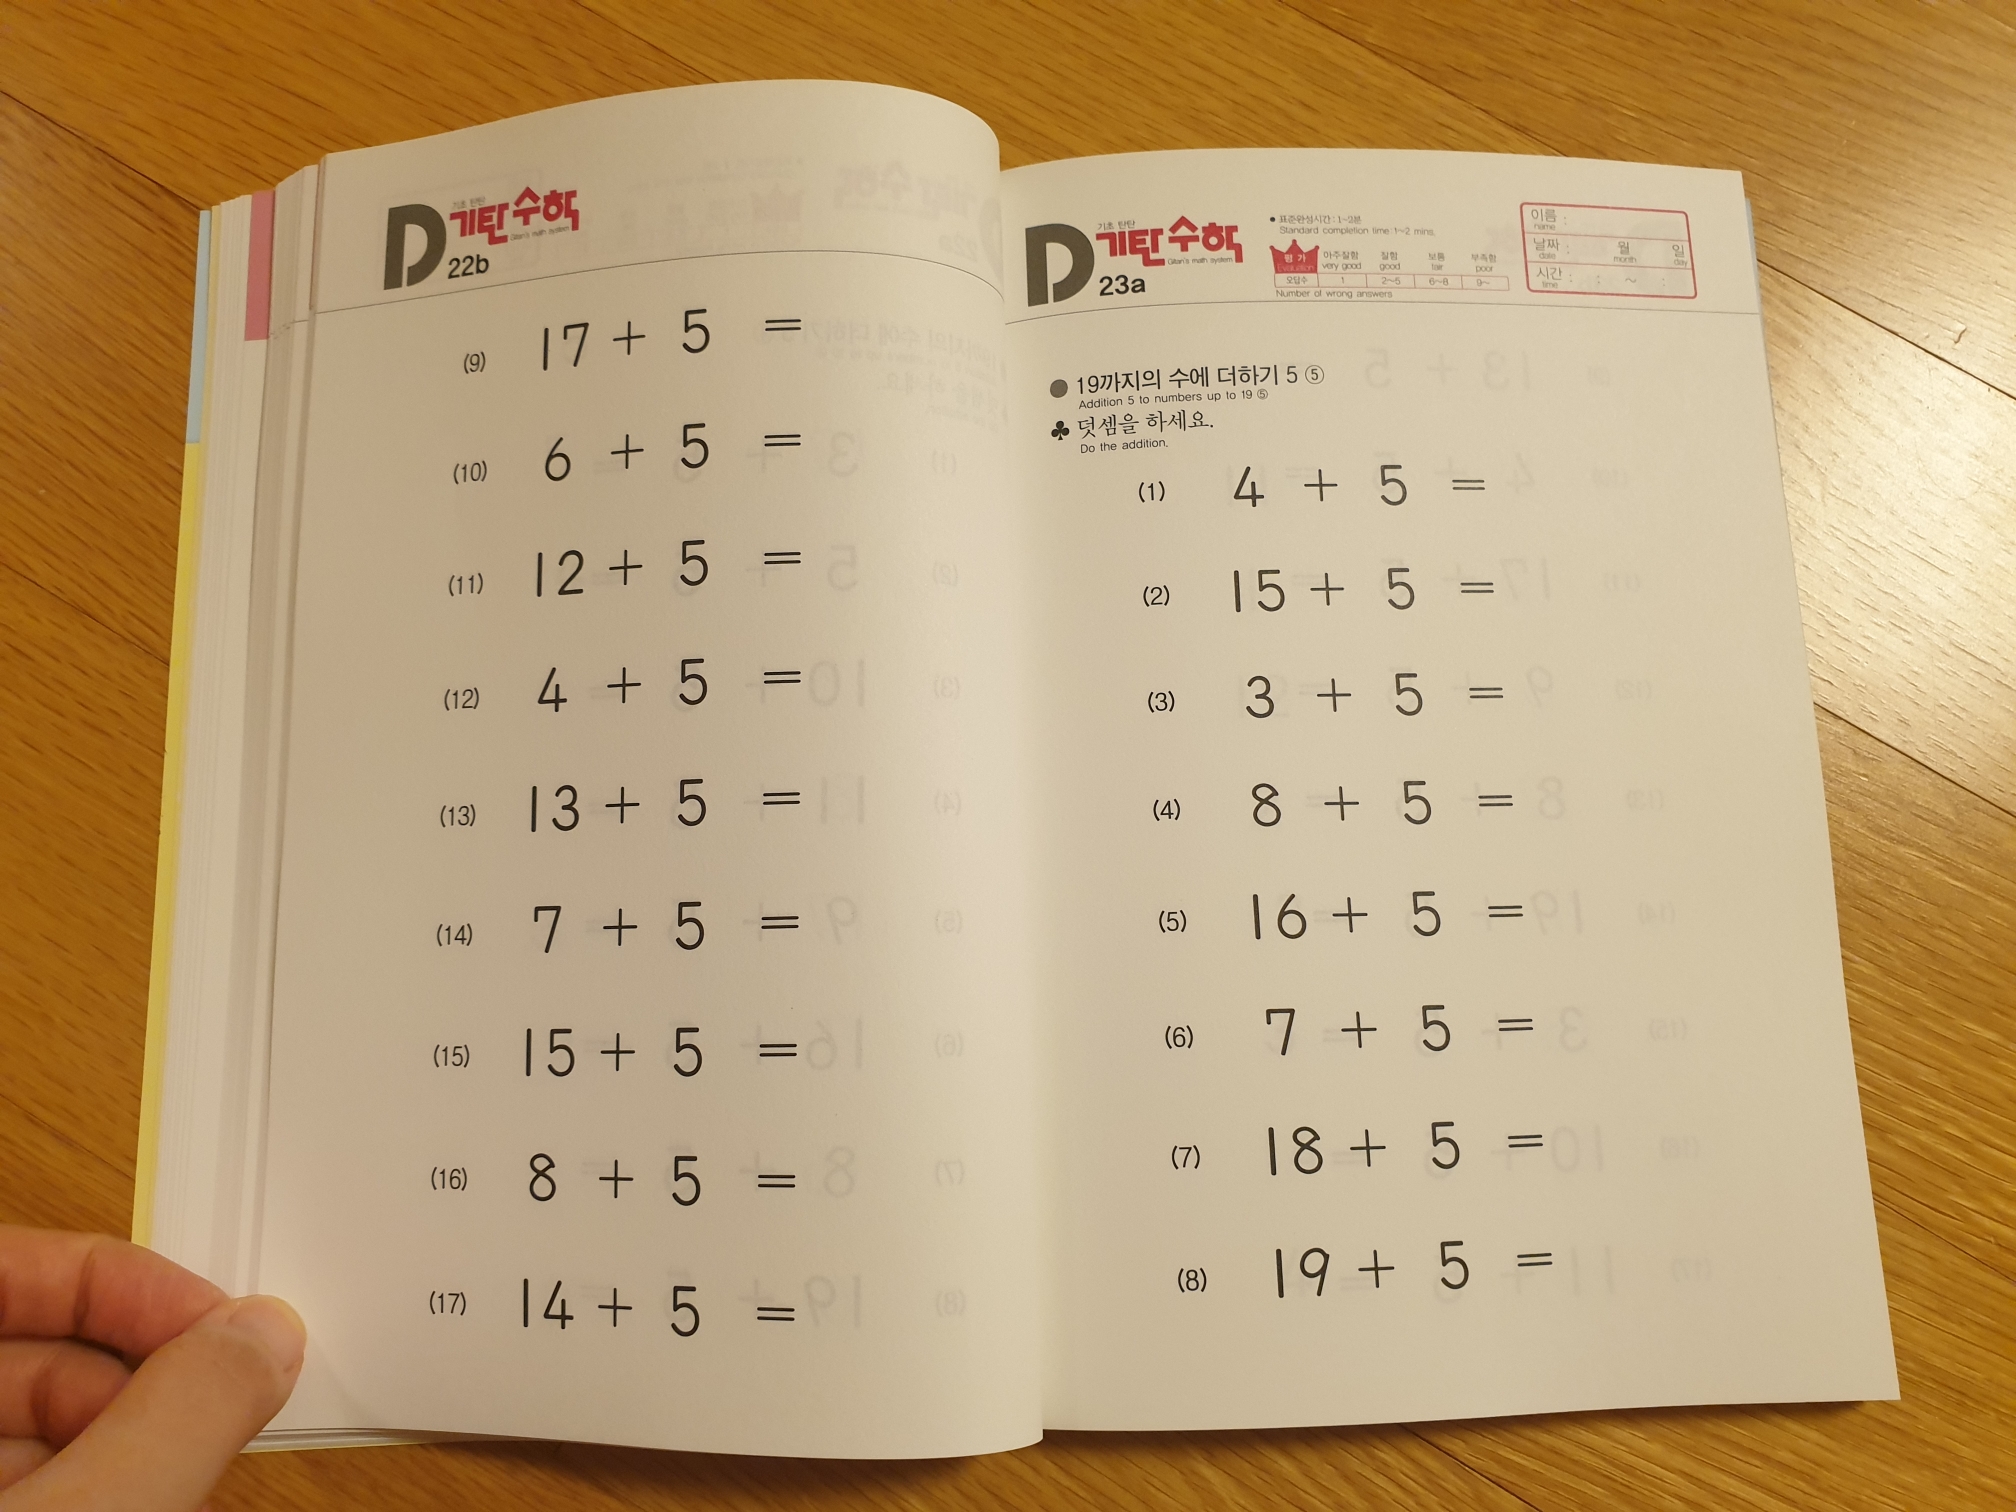 D 기초 탄탄
기탄수학
Gitan's math system
22b
(9) 17 + 5 =
(10) 6 + 5 =
(11) 12 + 5 =
(12) 4 + 5 =
(13) 13 + 5 =
(14) 7 + 5 =
(15) 15 + 5 =
(16) 8 + 5 =
(17) 14 + 5 =
D 기초 탄탄
기탄수학
Gitan's math system
23a
● 표준완성시간 : 1~2분
Standard completion time: 1~2 mins.
평가 아주잘함 잘함 보통 부족함
Evaluation very good good fair poor
오답수 1 2~5 6~8 9~
Number of wrong answers
이름 :
name
날짜 : 월 일
date month day
시간 : : ~ :
time
● 19까지의 수에 더하기 5 ⑤
Addition 5 to numbers up to 19 ⑤
♣ 덧셈을 하세요.
Do the addition.
(1) 4 + 5 =
(2) 15 + 5 =
(3) 3 + 5 =
(4) 8 + 5 =
(5) 16 + 5 =
(6) 7 + 5 =
(7) 18 + 5 =
(8) 19 + 5 =